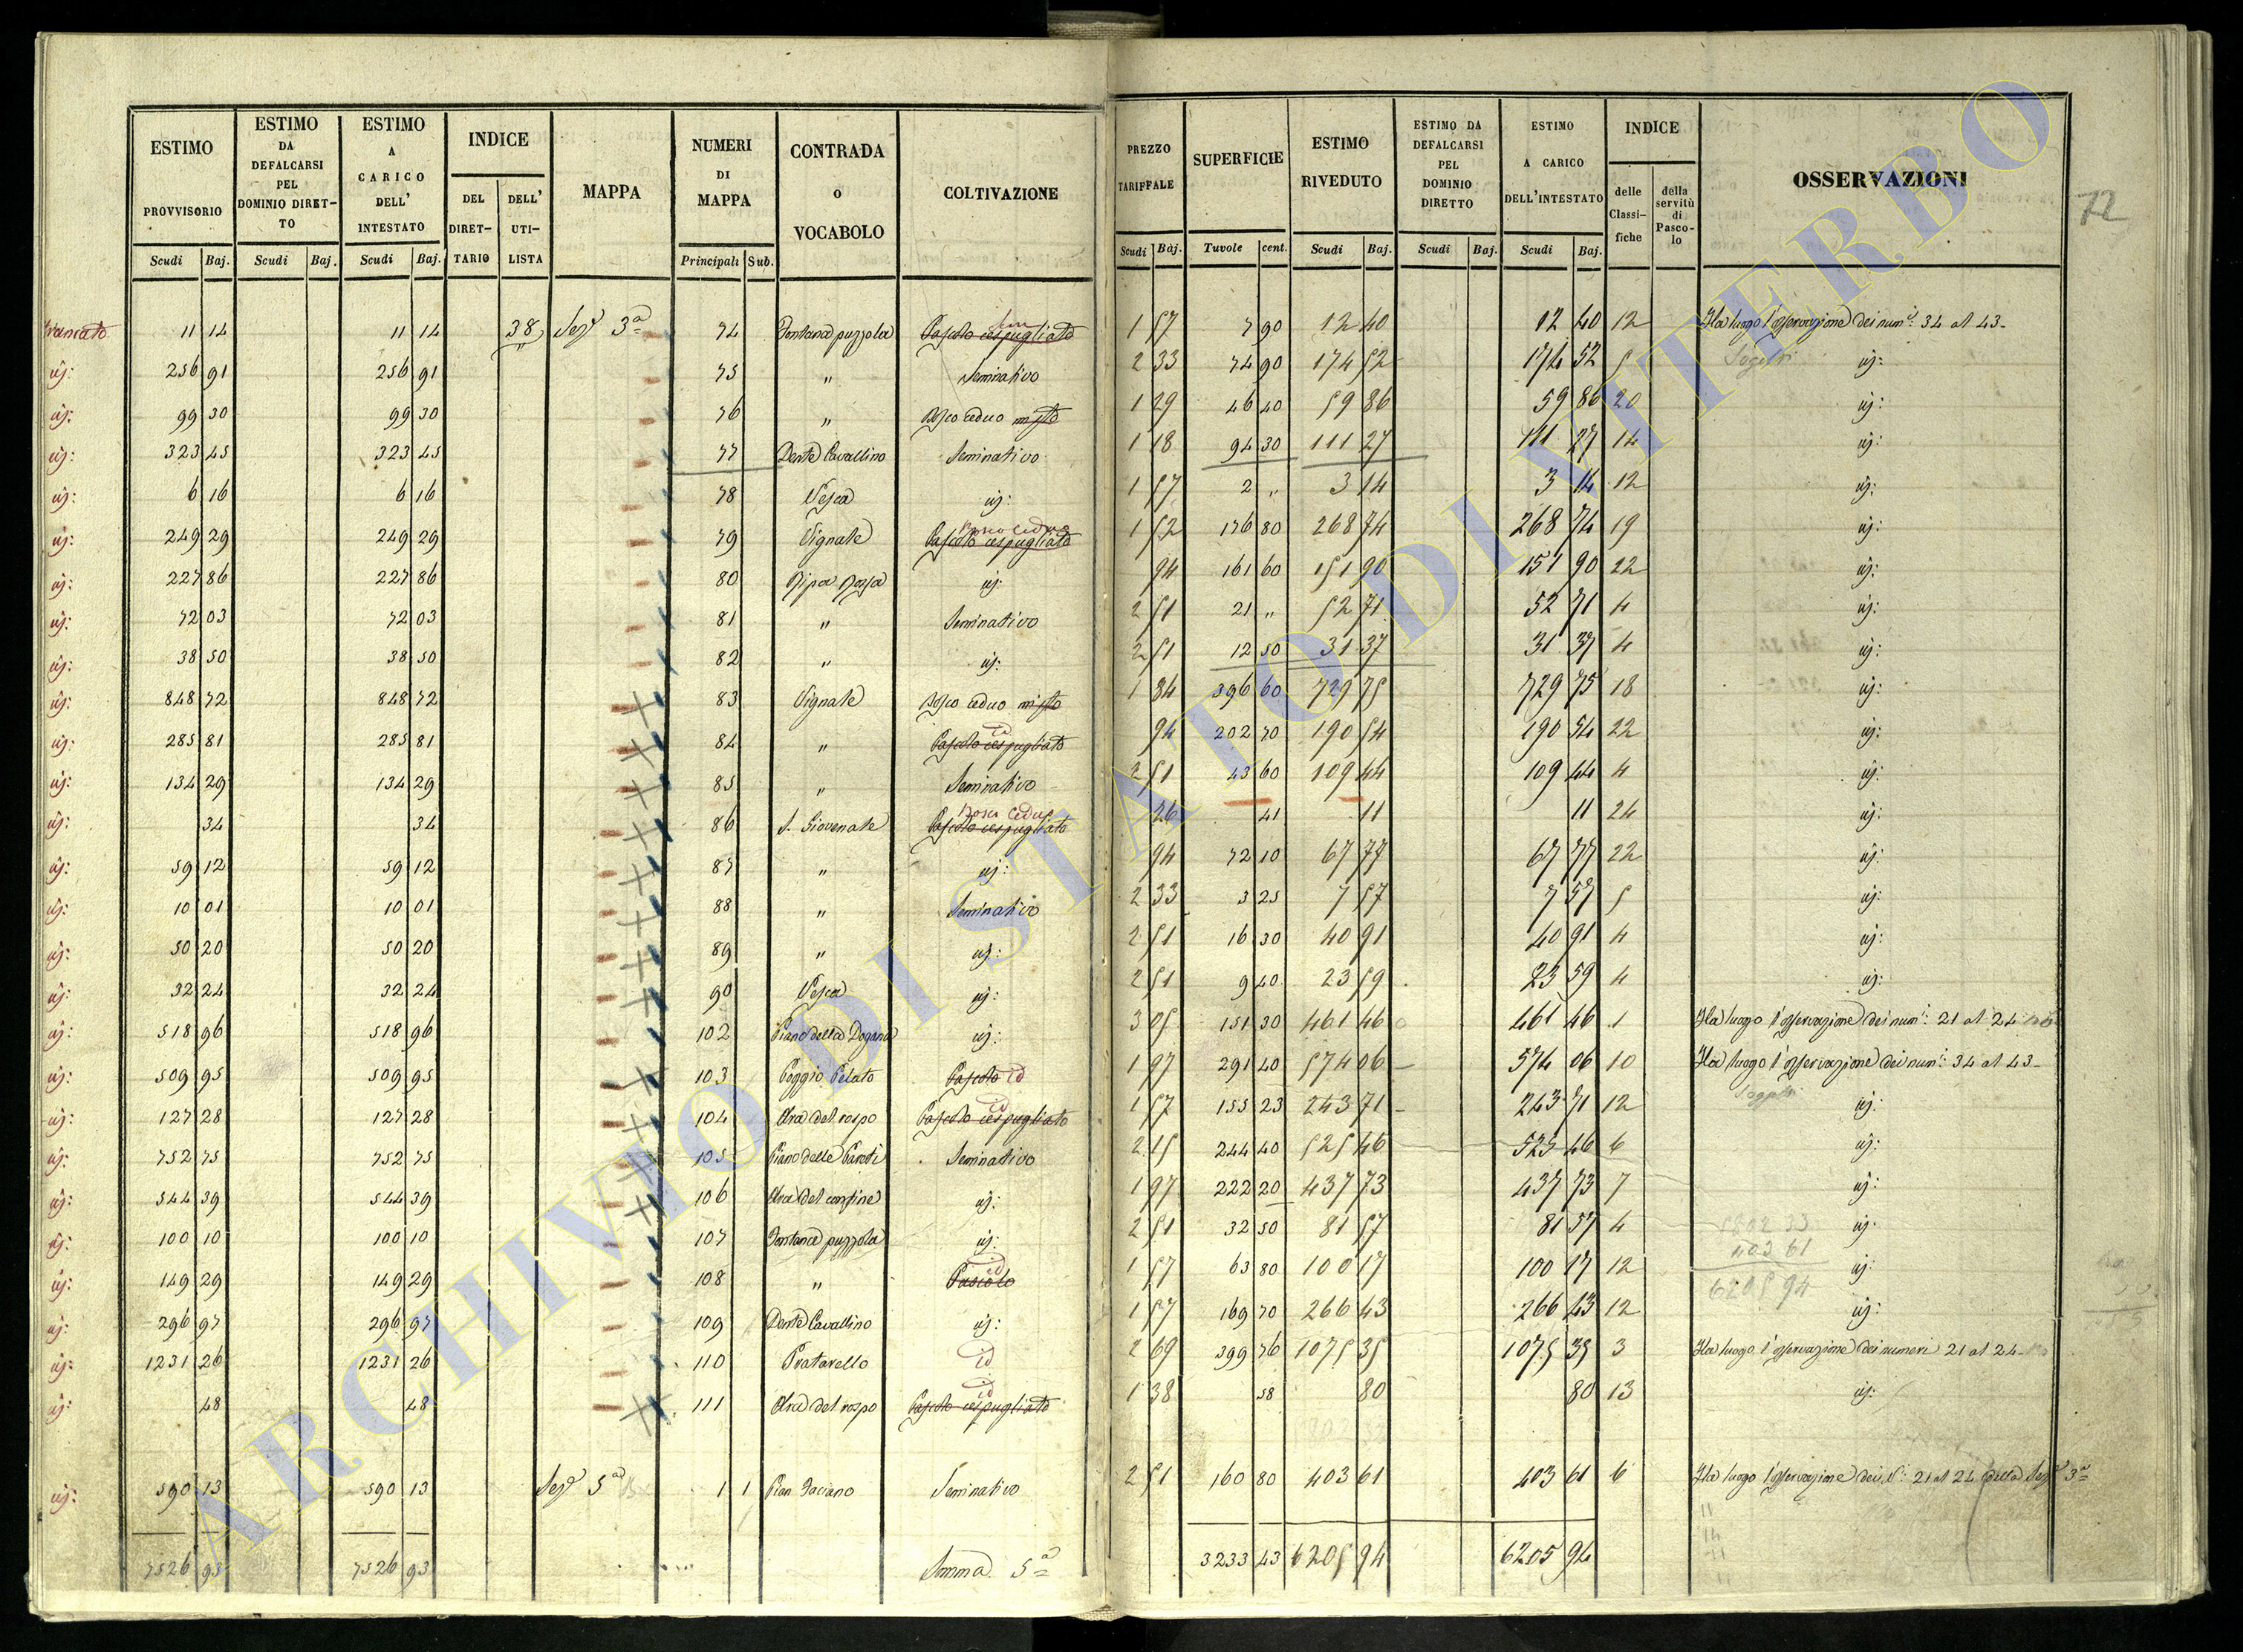 ESTIMO PROVVISORIO Scudi Baj. ESTIMO DA DEFALCARSI PEL DOMINIO DIRET-TO Scudi Baj. ESTIMO A CARICO DELL' INTESTATO Scudi Baj. INDICE DEL DIRET-TARIO DELL' UTI-LISTA MAPPA NUMERI DI MAPPA Principali Sub. CONTRADA o VOCABOLO COLTIVAZIONE
PREZZO TARIFFALE Scudi Baj. SUPERFICIE Tavole cent. ESTIMO RIVEDUTO Scudi Baj. ESTIMO DA DEFALCARSI PEL DOMINIO DIRETTO Scudi Baj. ESTIMO A CARICO DELL'INTESTATO Scudi Baj. INDICE delle Classi-fiche della servitù di Pasco-lo OSSERVAZIONI
72
11 14 11 14 38 Sez.e 3a 74 Fontana puzzola Pascolo cespugliato 1 57 7 90 12 40 12 40 12 Ha luogo l'osservazione dei num.i: 34 al 43
id: 256 91 256 91 75 " Seminativo 2 33 74 90 174 52 174 52 5 id:
id: 99 30 99 30 76 " Bosco ceduo misto 1 29 46 40 59 86 59 86 20 id:
id: 323 45 323 45 77 Dente Cavallino Seminativo 1 18 94 30 111 27 111 27 14 id:
id: 6 16 6 16 78 Vesca id: 1 57 2 " 3 14 3 14 12 id:
id: 249 29 249 29 79 Vignale Bosco Ceduo Pascolo cespugliato 1 52 176 80 268 74 268 74 19 id:
id: 227 86 227 86 80 Ripa Rossa id: 94 161 60 151 90 151 90 22 id:
id: 72 03 72 03 81 " Seminativo 2 51 21 " 52 71 52 71 4 id:
id: 38 50 38 50 82 " id: 2 51 12 50 31 37 31 37 4 id:
id: 848 72 848 72 83 Vignale Bosco ceduo misto 1 84 396 60 729 75 729 75 18 id:
id: 285 81 285 81 84 " id Pascolo cespugliato 94 202 70 190 54 190 54 22 id:
id: 134 29 134 29 85 " Seminativo 2 51 43 60 109 44 109 44 4 id:
id: 34 34 86 S. Giovenale Bosco Ceduo Pascolo cespugliato 26 41 11 11 24 id:
id: 59 12 59 12 87 " id: 94 72 10 67 77 67 77 22 id:
id: 10 01 10 01 88 " Seminativo 2 33 3 25 7 57 7 57 5 id:
id: 50 20 50 20 89 " id: 2 51 16 30 40 91 40 91 4 id:
id: 32 24 32 24 90 Vesca id: 2 51 9 40 23 59 23 59 4 id:
id: 518 96 518 96 102 Piano della Dogana id: 3 05 151 30 461 46 461 46 1 Ha luogo l'osservazione dei num.i: 21 al 24
id: 509 95 509 95 103 Poggio Pelato Pascolo id 1 97 291 40 574 06 574 06 10 Ha luogo l'osservazione dei num.i: 34 al 43
id: 127 28 127 28 104 Ara del rospo id Pascolo cespugliato 1 57 155 23 243 71 243 71 12 id:
id: 752 75 752 75 105 Piano delle Seminativo 2 15 244 40 525 46 525 46 6 id:
id: 544 39 544 39 106 Ara del confine id: 1 97 222 20 437 73 437 73 7 id:
id: 100 10 100 10 107 Fontana puzzola id: 2 51 32 50 81 57 81 57 4 id:
id: 149 29 149 29 108 " id Pascolo 1 57 63 80 100 17 100 17 12 id:
id: 296 97 296 97 109 Dente Cavallino id: 1 57 169 70 266 43 266 43 12 id:
id: 1231 26 1231 26 110 Pratarello id 2 69 399 76 1075 35 1075 35 3 Ha luogo l'osservazione dei numeri 21 al 24
id: 48 48 111 Ara del rospo id Pascolo cespugliato 1 38 58 80 80 13 id:
id: 590 13 590 13 Sez.e 5a 1 1 Pian Seminativo 2 51 160 80 403 61 403 61 6 Ha luogo l'osservazione dei N.i: 21 al 24 della Sez.e 3a
7526 93 7526 93 Somma 5a 3233 43 6205 94 6205 94
403 61
6205 94
ARCHIVIO DI STATO DI VITERBO